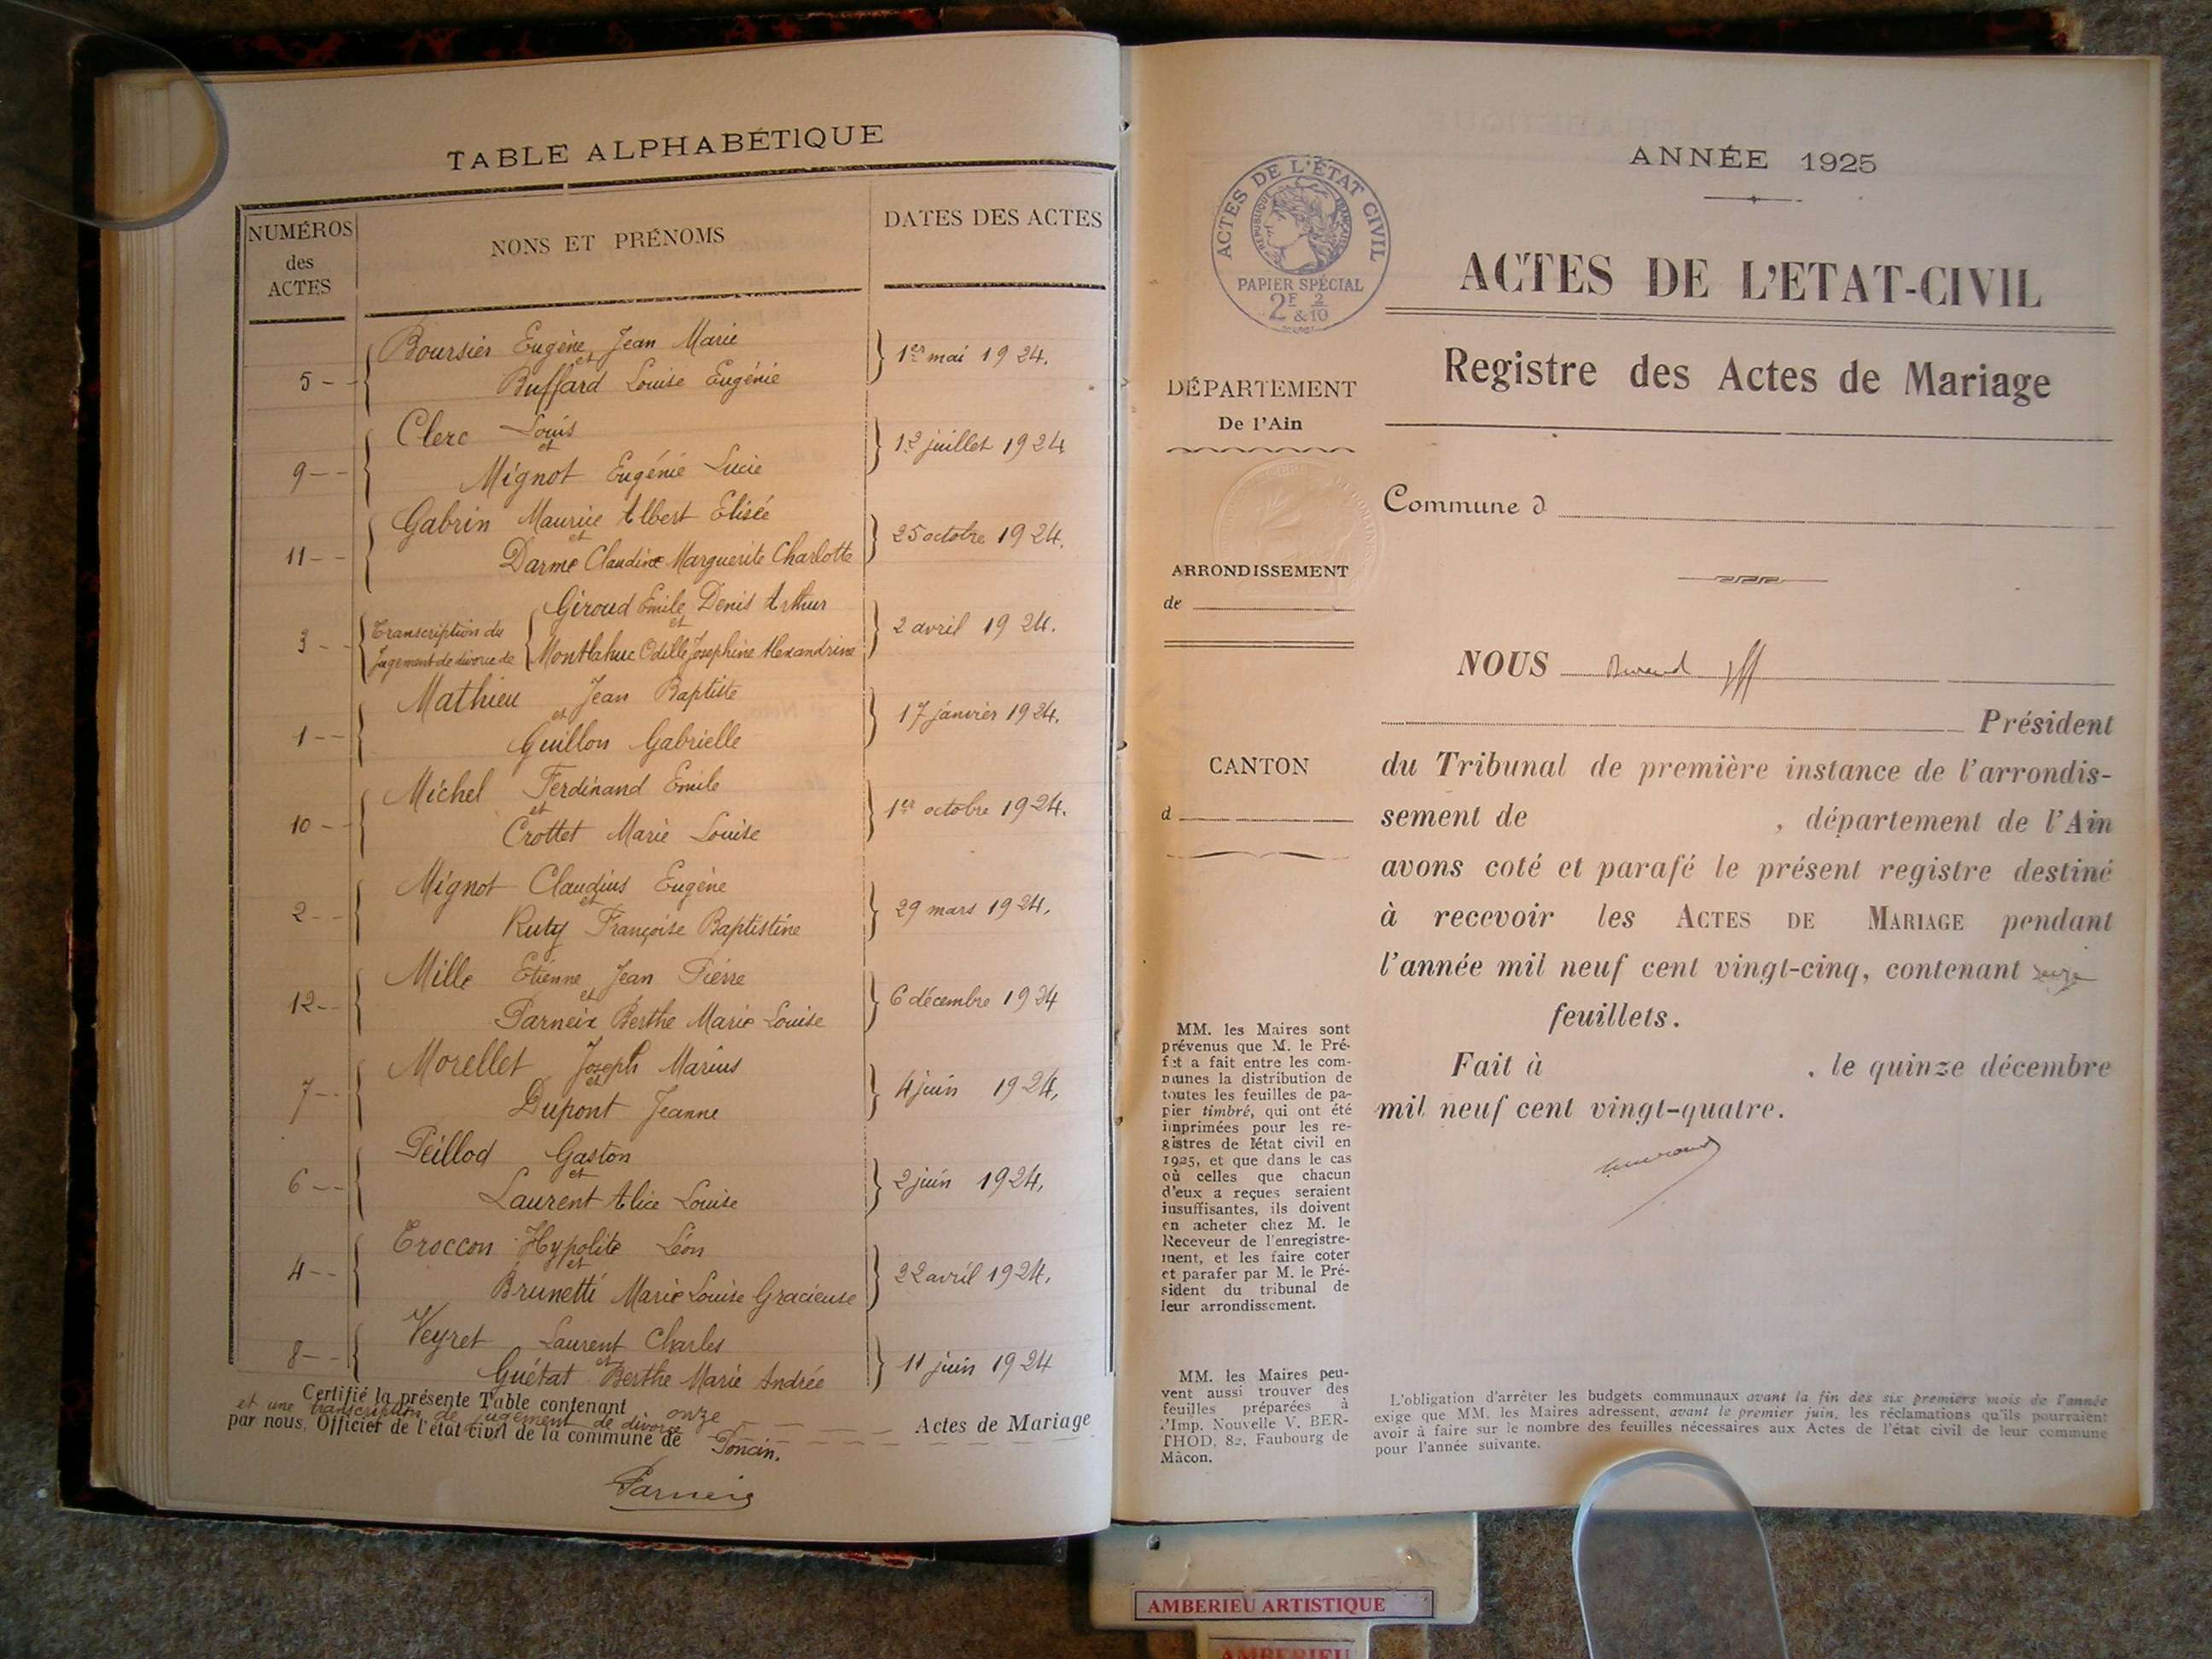 TABLE ALPHABÉTIQUE
NUMÉROS
des
ACTES
NONS ET PRÉNOMS
DATES DES ACTES
Boursier Eugène Jean Marie
et
5 - - Buffard Louise Eugénie
1er mai 1924.
Clerc Louis
et
9 - - Mignot Eugénie Lucie
12 juillet 1924
Gabrin Maurice Albert Elisée
et
11 - - Darme Claudine Marguerite Charlotte
25 octobre 1924.
Giroud Emile Denis Arthur
et
3 - - Transcription du
jugement de divorce de
Montlahuc Odille Josephine Alexandrine
2 avril 1924.
Mathieu Jean Baptiste
et
1 - - Guillon Gabrielle
17 janvier 1924.
Michel Ferdinand Emile
et
10 - - Crottet Marie Louise
1er octobre 1924.
Mignot Claudius Eugène
et
2 - - Ruty Françoise Baptistine
29 mars 1924.
Mille Etienne Jean Pierre
et
12 - - Parneix Berthe Marie Louise
6 décembre 1924
Morellet Joseph Marius
et
7 - - Dupont Jeanne
4 juin 1924,
Peillod Gaston
et
6 - - Laurent Alice Louise
2 juin 1924,
Troccon Hypolite Léon
et
4 - - Brunetti Marie Louise Gracieuse
22 avril 1924,
Veyret Laurent Charles
et
8 - - Guétat Berthe Marie Andrée
11 juin 1924
Certifié la présente Table contenant onze Actes de Mariage
et une transcription de jugement de divorce
par nous, Officier de l'état civil de la commune de Poncin.
Parneix
ANNÉE 1925
ACTES DE L'ÉTAT CIVIL
RÉPUBLIQUE FRANÇAISE
PAPIER SPÉCIAL
2F 2
&10
ACTES DE L'ETAT-CIVIL
Registre des Actes de Mariage
DÉPARTEMENT
De l'Ain
Commune d
ARRONDISSEMENT
de
CANTON
d
NOUS
Président
du Tribunal de première instance de l'arrondis-
sement de , département de l'Ain
avons coté et parafé le présent registre destiné
à recevoir les ACTES DE MARIAGE pendant
l'année mil neuf cent vingt-cinq, contenant seize
feuillets.
Fait à , le quinze décembre
mil neuf cent vingt-quatre.
MM. les Maires sont
prévenus que M. le Pré-
fet a fait entre les com-
munes la distribution de
toutes les feuilles de pa-
pier timbré, qui ont été
imprimées pour les re-
gistres de létat civil en
1925, et que dans le cas
où celles que chacun
d'eux a reçues seraient
insuffisantes, ils doivent
en acheter chez M. le
Receveur de l'enregistre-
ment, et les faire coter
et parafer par M. le Pré-
sident du tribunal de
leur arrondissement.
MM. les Maires peu-
vent aussi trouver des
feuilles préparées à
l'Imp. Nouvelle V. BER-
THOD, 82, Faubourg de
Mâcon.
L'obligation d'arrêter les budgets communaux avant la fin des six premiers mois de l'année
exige que MM. les Maires adressent, avant le premier juin, les réclamations qu'ils pourraient
avoir à faire sur le nombre des feuilles nécessaires aux Actes de l'état civil de leur commune
pour l'année suivante.
AMBERIEU ARTISTIQUE
AMBERIEU